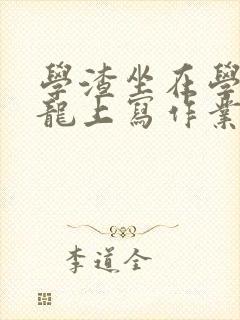 學渣坐在學
龍上寫作業
李道全